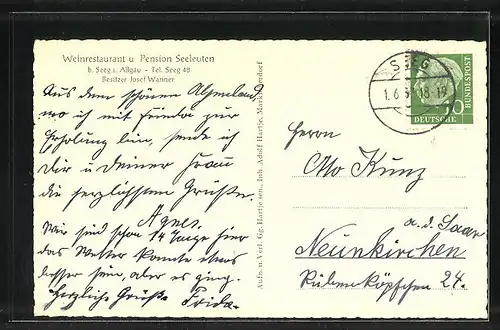 Weinrestaurant u Pension Seeleuten
b. Seeg i. Allgäu - Tel. Seeg 48
Besitzer Josef Wanner
Aus dem schönen
wo ich mit Frieda zur
Erholung bin, sende ich
Dir u Deiner Frau
die herzlichsten Grüße.
Agnes.
Wir sind schon 14 Tage hier
das Wetter könnte etwas
besser sein, aber es ging.
Herzliche Grüße Frida.
Aufn. u. Verl. Gg. Hartje sen., Inh. Adolf Hartje, Marktoberdorf
SEEG
1.6.5 -18-19
10
DEUTSCHE
BUNDESPOST
Herrn
Otto Kunz
a. d. Saar
Neunkirchen
24.